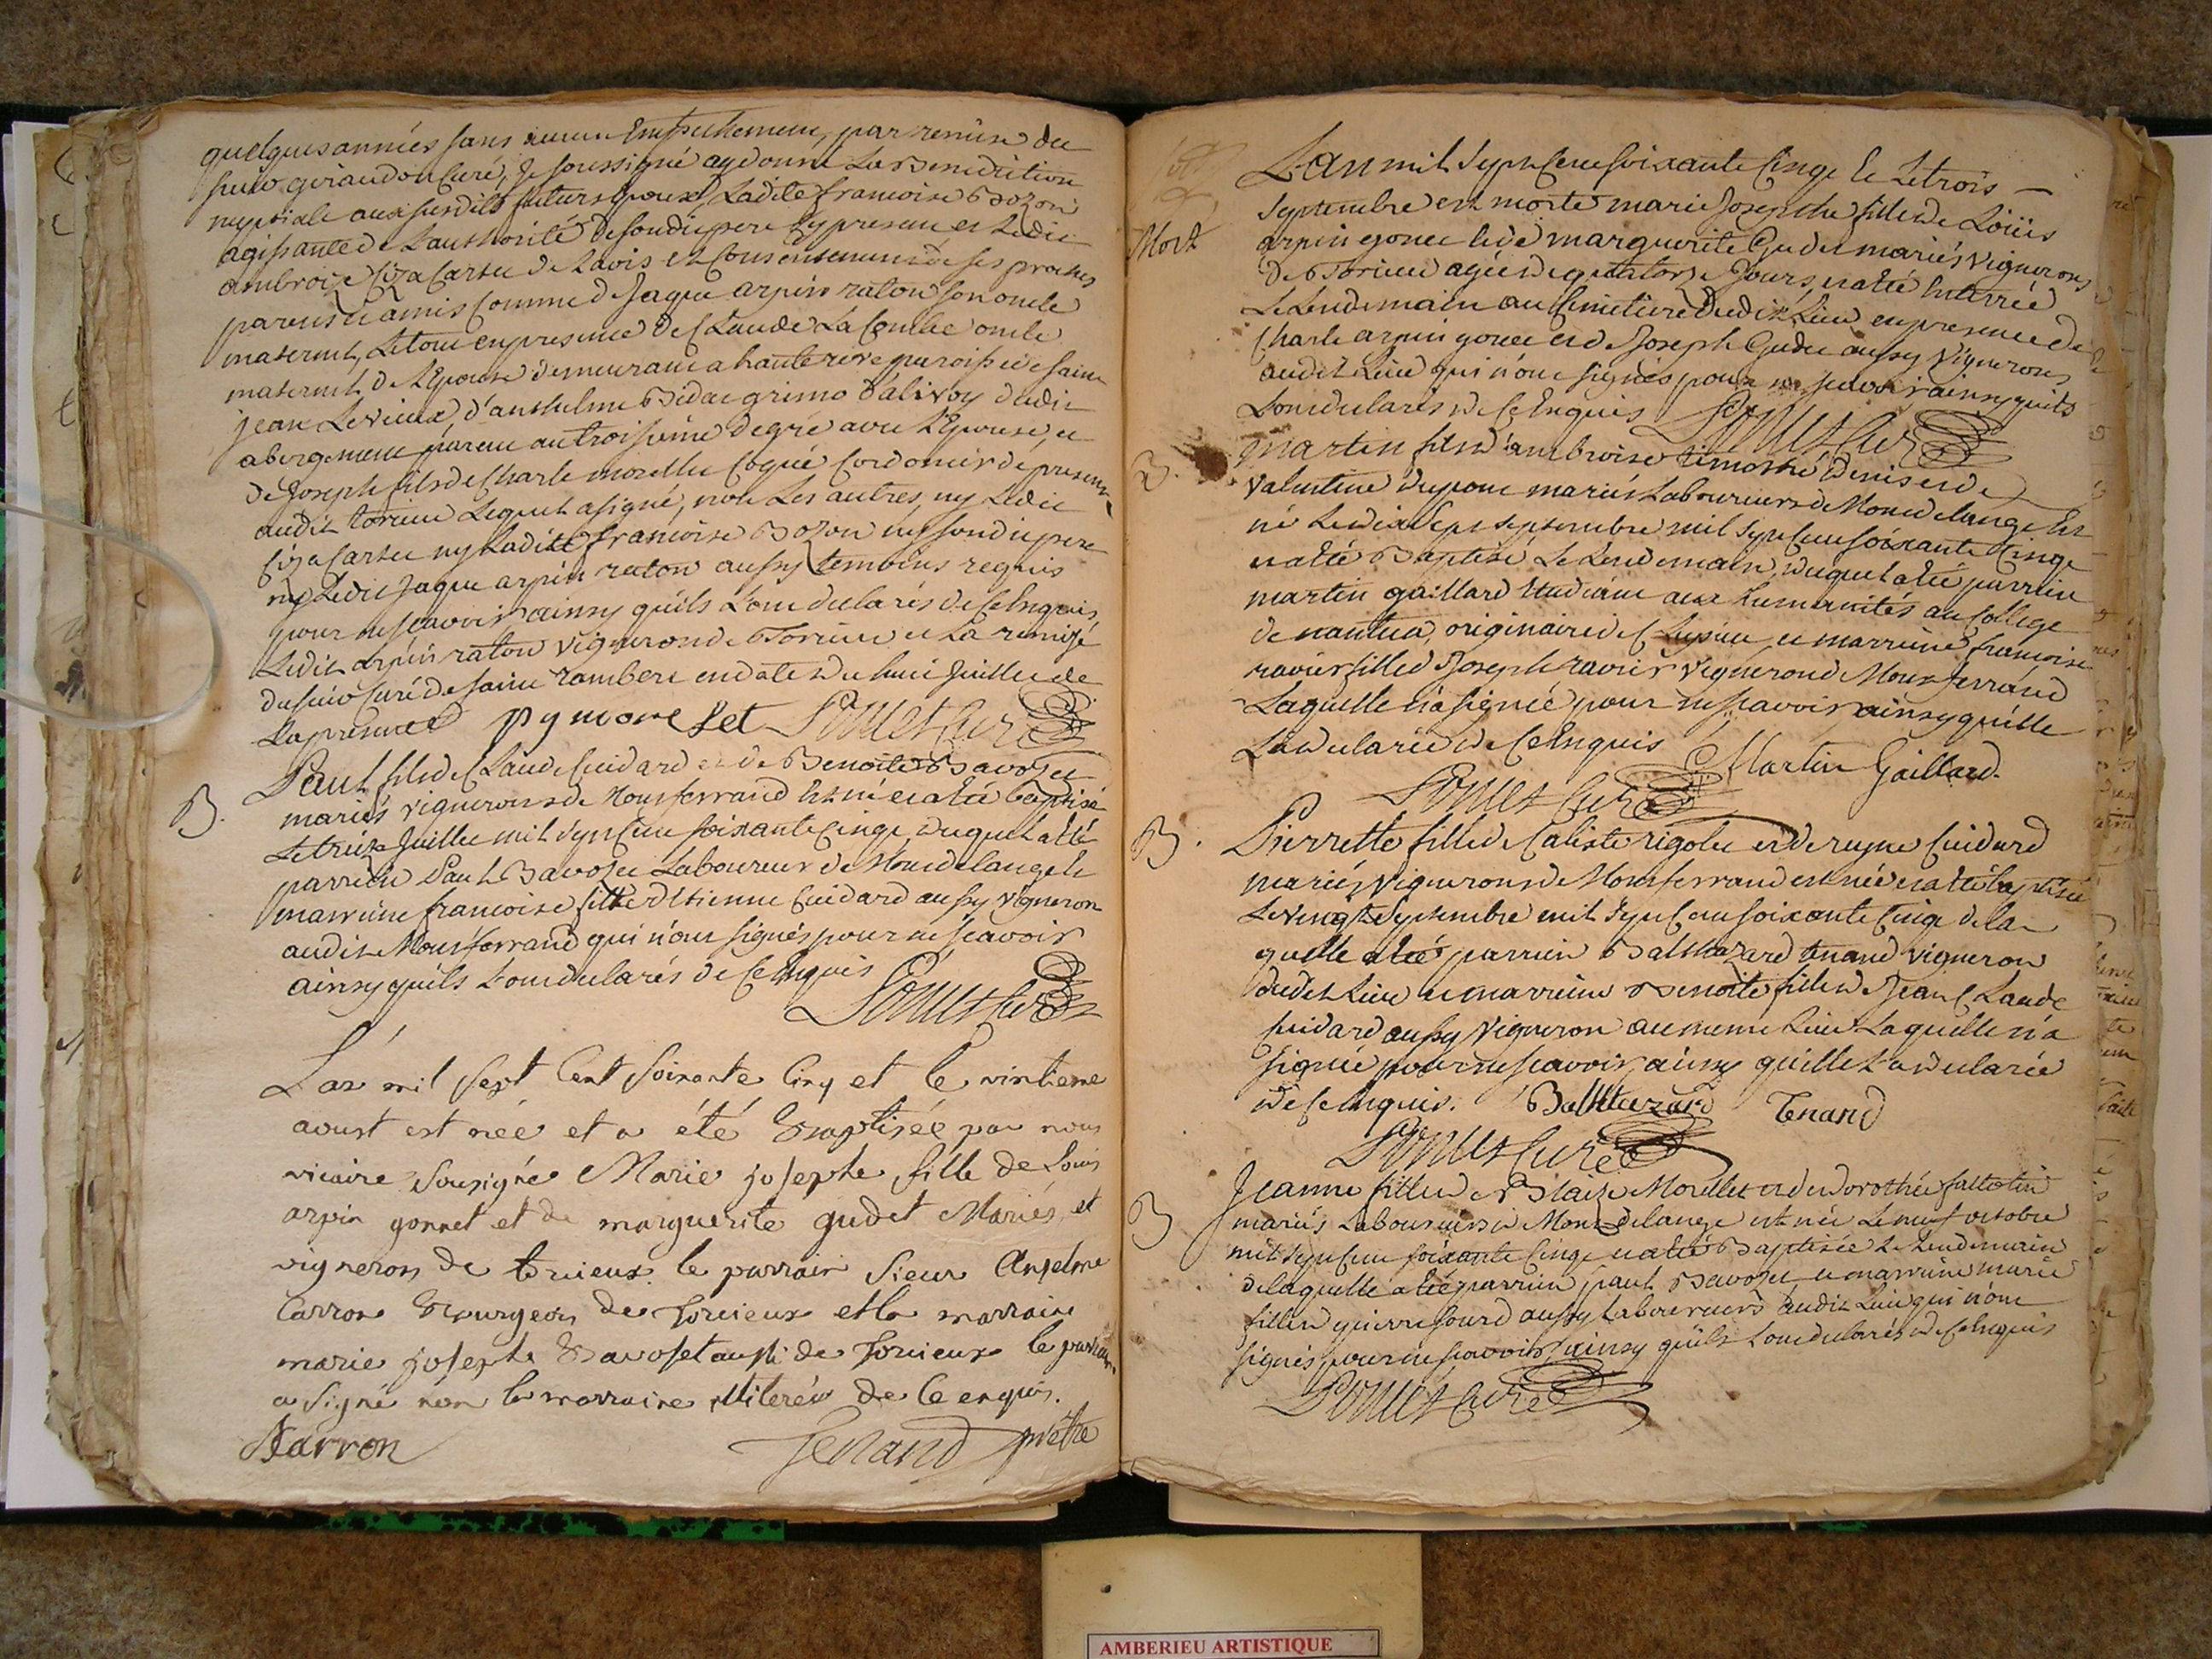 quelques années sans aucun Empechement, par remise du
sieur giraudon Curé, Je soussigné ay donné La Benediction
nuptiale aux susdits futurs Epoux, Ladite francoise Bozon
agissante de L'authorité de sondit pere Cy present et Ledit
ambroise Ciza Cartu de L'avis et Consentement de ses proches
parens et amis Comme de Jaque arpin raton son oncle
maternel, Le tout en presence de Claude La Combe oncle
maternel de L'Epouse demeurant a hauterive paroisse de saint
jean Le vieux, d'anthelme Bidat grimo d'alivoy dudit
abergement parent au troisieme degré avec L'Epouse, et
de Joseph fils de Charle morellet Coqué Cordonnier de present
audit torcieu Lequel a signé, non Les autres ny Ledit
Ciza Cartu ny Ladite francoise Bozon ny sondit pere
ny Ledit Jaque arpin raton aussy temoins requis
pour ne scavoir ainsy quils L'ont declarés de Ce Enquis,
Ledit arpin raton vigneron de Torcieu et La remise
du sieur Curé de saint rambert en date du huit Juillet de
La presente pymorellet Ponet Curé
B.
Paul fils de Claude Cuidard et de Benoite Bavozet
mariés vignerons de Montferrand Est né et a été baptisé
Le treize Juillet mil sept Cent soixante Cinqe, duquel a été
parrein Paul Bavozet Laboureur de Montdelange et
marreine francoise fille d'Etienne Cuidard aussy vigneron
audit Montferrand qui n'ont signés pour ne scavoir
ainsy quils L'ont declarés de Ce Enquis
Ponet Curé
L'an mil sept Cent soixante Cinq et le vintieme
aoust est née et a été Baptisée par nous
vicaire sousigné Marie josephe fille de Louis
arpin gonnet et de marguerite gudet Mariés et
vignerons de torcieux. le parrain Sieur Anselme
Carron Bourgeois de Torcieux et la marraine
marie josephe Bavoset aussi de Torcieux le parrain
a signé non la marraine illiterée de Ce enquis.
Carron Tenand prêtre
Mort
L'an mil sept Cent soixante Cinqe et Le trois
Septembre est morte marie Josephe fille de Loüis
arpin gonet et de marguerite Gudet mariés vignerons
de Torcieu agée de quatorze Jours, et a été Enterrée
Le Lendemain au Cimetiere dudit Lieu en presence de
Charle arpin gonet et de Joseph Gudet aussy vignerons
audit Lieu qui n'ont signés pour ne scavoir ainsy quils
L'ont declarés de Ce Enquis Ponet Curé
B.
martin fils d'ambroise timothé Denis et de
valentine Dupont mariés Laboureurs de Montdelange Est
né Le dix Sept septembre mil sept Cent soixante Cinqe
et a été Baptisé Le Lendemain, duquel a été parrein
martin gaillard Etudiant aux humanités au College
de nantua, originaire de Cleyzieu et marreine francoise
ravier fille de Joseph ravier vigneron de Montferrand
Laquelle n'a signée pour ne scavoir ainsy qu'elle
L'a declarée de Ce Enquis Martin Gaillard
Ponet Curé
B.
Pierrette fille de Caliste rigolet et de reyne Cuidard
mariés vignerons de Montferrand est née et a été baptisée
Le vingt Septembre mil sept Cent soixante Cinqe de la
quelle a été parrein Balthazard tenand vigneron
dudit Lieu et marreine Benoite fille de Jean Claude
Cuidard aussy vigneron au meme Lieu Laquelle n'a
signée pour ne scavoir, ainsy qu'elle L'a declarée
de Ce Enquis. Balthazard Tenand
Ponet Curé
B
Jeanne fille de Blaize Morellet et de dorothée fallatin
mariés Laboureurs de Montdelange est née Le neuf octobre
mil sept Cent soixante Cinqe et a été Baptisée Le Lendemain
de laquelle a été parrein paul Bavozet et marreine marie
fille de pierre sourd aussy Laboureurs audit Lieu qui n'ont
signés pour ne scavoir ainsy quils L'ont declarés de Ce Enquis
Ponet Curé
AMBERIEU ARTISTIQUE